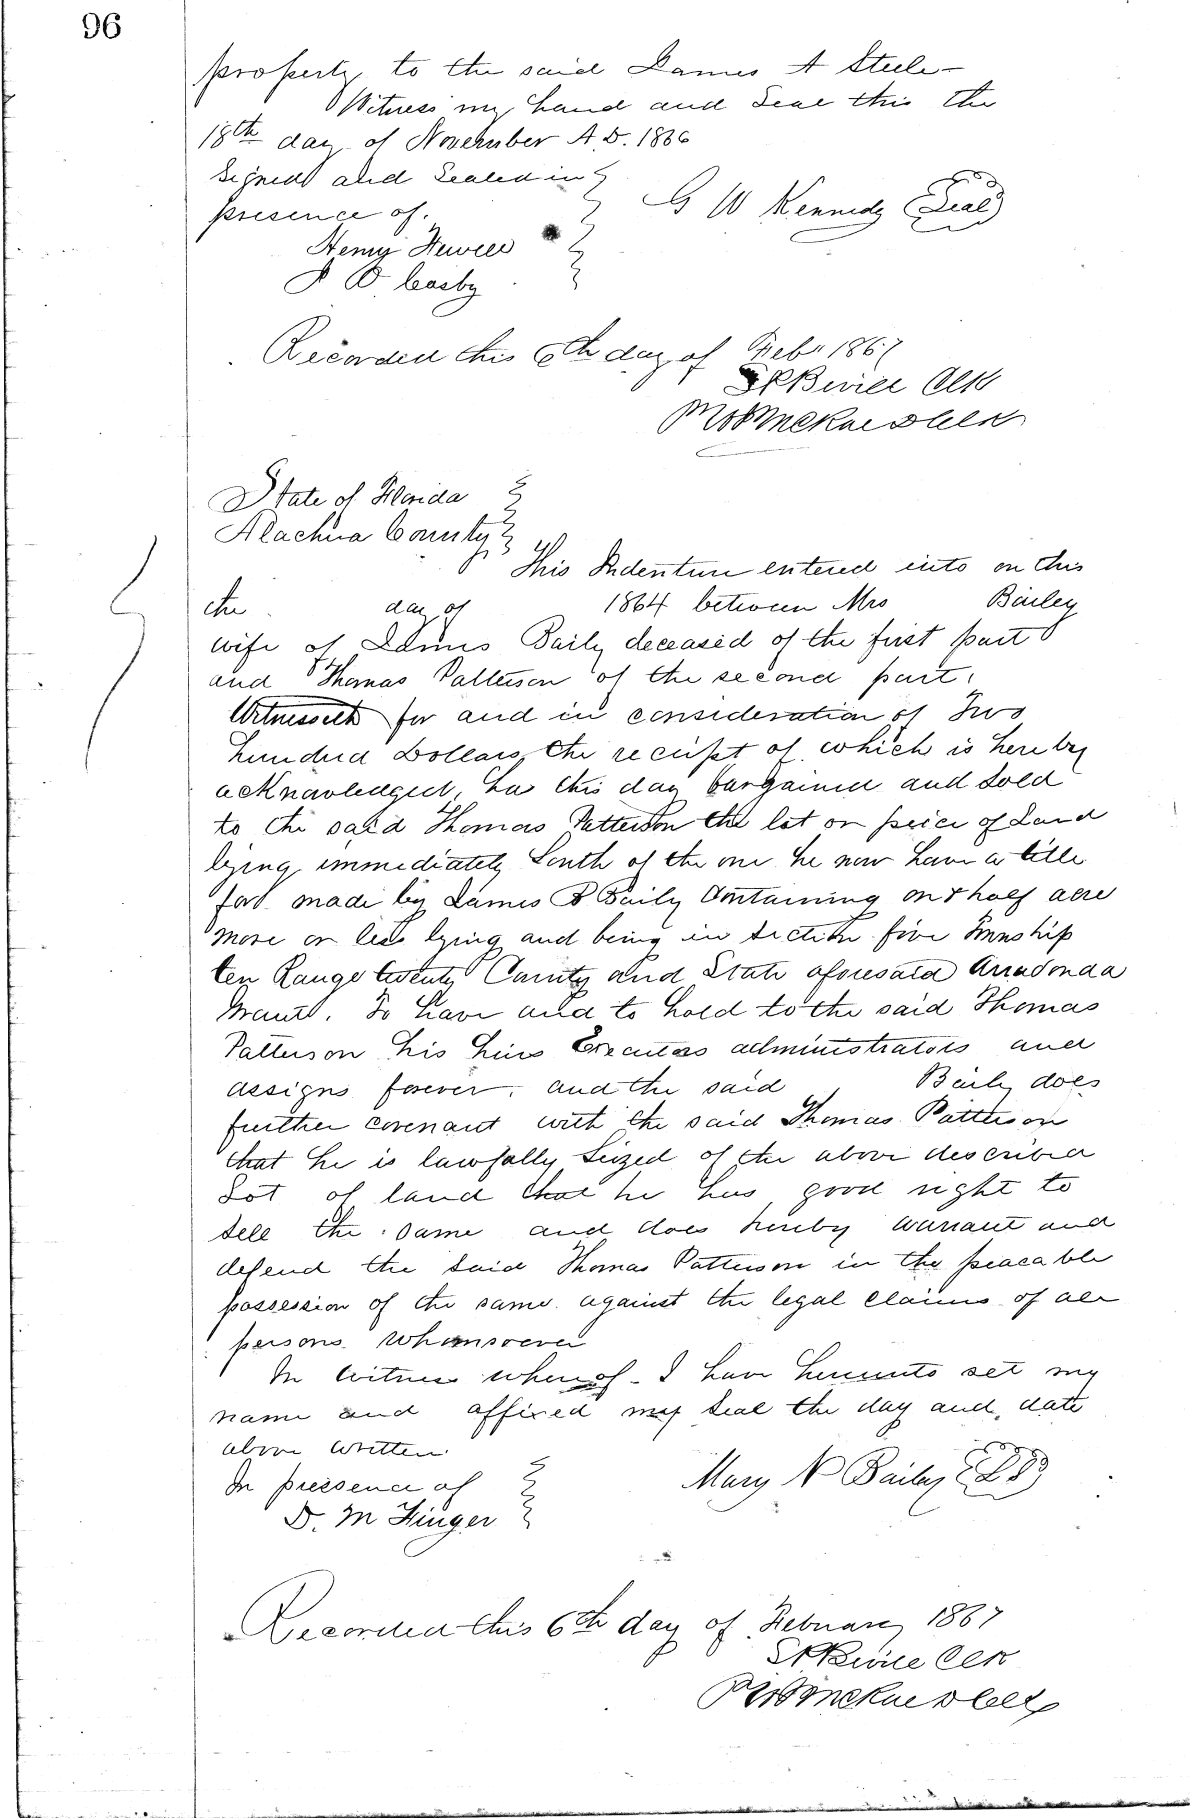 96
property to the said James A Steele
Witness my hand and Seal this the
18th day of November A.D. 1866
Signed and Sealed in
presence of.
G W Kennedy (Seal)
Henry
Casby
Recorded this 6th day of Feby 1867
Clk
State of Florida
Alachua County
This Indenture entered into on this
the day of 1864 between Mrs Bailey
wife of James Baily deceased of the first part
and Thomas Patterson of the second part,
Witnesseth for and in consideration of Two
hundred Dollars, the receipt of which is hereby
acknowledged, has this day bargained and Sold
to the said Thomas Patterson the lot or peice of Land
lying immediately South of the one he now have a title
for made by James B Baily Containing one half acre
more or less lying and being in Section five Township
ten Range twenty County and State aforesaid Arradonda
Grant. To have and to hold to the said Thomas
Patterson his heirs Executors administrators and
assigns forever, and the said Baily does
further covenant with the said Thomas Patterson
that he is lawfally Seized of the above described
Lot of land that he has good right to
sell the same and does hereby warrant and
defend the said Thomas Patterson in the peacable
possession of the same against the legal claims of all
persons whomsoever
In witness whereof I have hereunto set my
name and affixed my Seal the day and date
above written
In pressence of
Mary N Bailey (L S)
D. M Finger
Recorded this 6th day of Febuary 1867
Clk